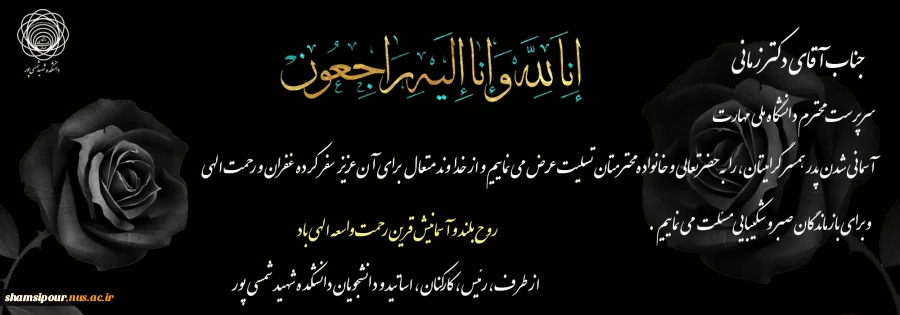 دانشکده شهید شمسی پور
انا لله و انا الیه راجعون
جناب آقای دکتر زمانی
سرپرست محترم دانشگاه ملی مهارت
آسمانی شدن پدر همسر گرامیتان، را به حضرتعالی و خانواده محترمتان تسلیت عرض می نماییم و از خداوند متعال برای آن عزیز سفر کرده غفران و رحمت الهی
و برای بازماندگان صبر و شکیبایی مسئلت می نماییم .
روح بلند و آسمانیش قرین رحمت واسعه الهی باد
از طرف، رئیس، کارکنان، اساتید و دانشجویان دانشکده شهید شمسی پور
shamsipour.nus.ac.ir